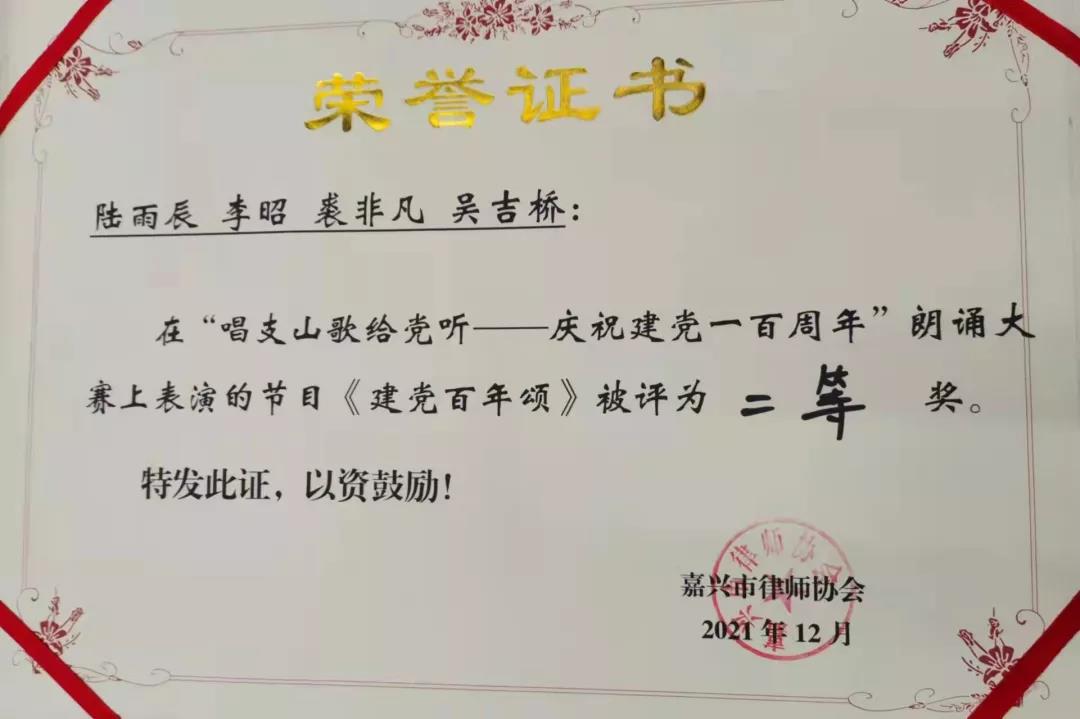 荣誉证书
陆雨辰 李昭 裘非凡 吴吉桥：
在“唱支山歌给党听——庆祝建党一百周年”朗诵大
赛上表演的节目《建党百年颂》被评为 二等 奖。
特发此证，以资鼓励！
嘉兴市律师协会
嘉兴市律师协会
2021 年 12 月